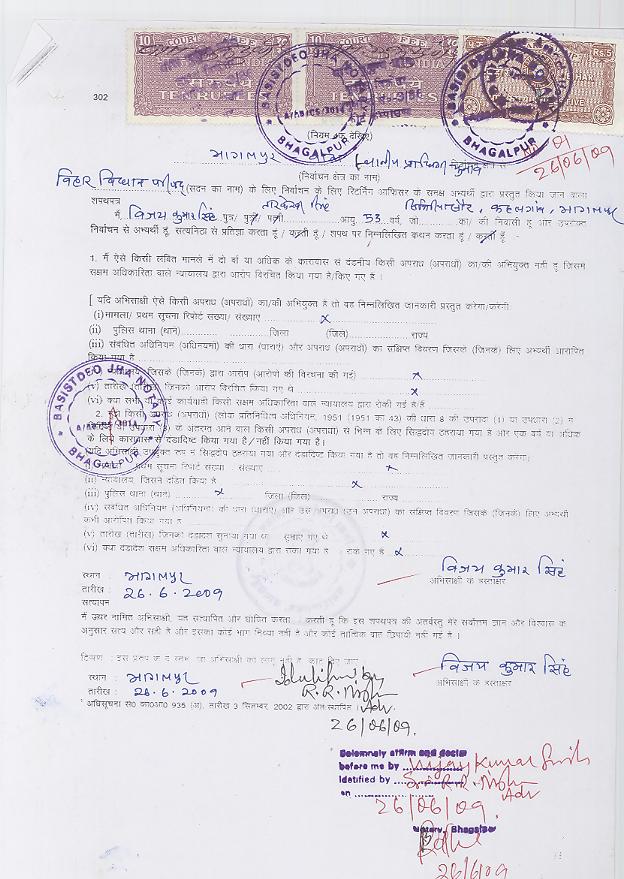 10 COURT FEE
10 COURT FEE
Rs.5
INDIA
BASISTDEO JHA NOTARY
BHAGALPUR
BASISTDEO JHA NOTARY
BHAGALPUR
302
26/06/09
भागलपुर स्थानीय
(निर्वाचन क्षेत्र का नाम)
बिहार विधान परिषद (सदन का नाम) के लिए निर्वाचन के लिए रिटर्निंग आफिसर के समक्ष अभ्यर्थी द्वारा प्रस्तुत किया जाने वाला
शपथपत्र
मैं, विजय कुमार सिंह पुत्र/ पुत्री/ पत्नी तारकेश्वर सिंह आयु 53 वर्ष, जो कहलगांव, भागलपुर का/ की निवासी हूं और उपरोक्त
निर्वाचन से अभ्यर्थी हूं, सत्यनिष्ठा से प्रतिज्ञा करता हूं / करती हूं / शपथ पर निम्नलिखित कथन करता हूं / करती हूं -
1. मैं ऐसे किसी लंबित मामले में दो वर्ष या अधिक के कारावास से दंडनीय किसी अपराध (अपराधों) का/की अभियुक्त नहीं हूं जिसमें
सक्षम अधिकारिता वाले न्यायालय द्वारा आरोप विरचित किया गया है/किए गए हैं ।
[ यदि अभिसाक्षी ऐसे किसी अपराध (अपराधों) का/की अभियुक्त है तो वह निम्नलिखित जानकारी प्रस्तुत करेगा/करेगी
(i) मामला/ प्रथम सूचना रिपोर्ट संख्या/ संख्याएं x
(ii) पुलिस थाना (थाने) जिला (जिले) राज्य
(iii) संबंधित अधिनियम (अधिनियमों) की धारा (धाराएं) और अपराध (अपराधों) का संक्षिप्त विवरण जिसके (जिनके) लिए अभ्यर्थी आरोपित
किया गया है
न्यायालय जिसके (जिनके) द्वारा आरोप (आरोपों की विरचना की गई) x
(v) तारीख (तारीखें) जिनको आरोप विरचित किया गया थे x
(vi) क्या सभी या कोई कार्यवाही किसी सक्षम अधिकारिता वाले न्यायालय द्वारा रोकी गई है/हैं
BASISTDEO JHA NOTARY
BHAGALPUR
2. मुझे किसी अपराध (अपराधों) (लोक प्रतिनिधित्व अधिनियम, 1951 (1951 का 43) की धारा 8 की उपधारा (1) या उपधारा (2) में
के अंतर्गत आने वाले किसी अपराध (अपराधों) से भिन्न के लिए सिद्धदोष ठहराया गया है और एक वर्ष या अधिक
के लिए कारावास से दंडादिष्ट किया गया है/नहीं किया गया है।
यदि अभिसाक्षी उपर्युक्त रूप में सिद्धदोष ठहराया गया और दंडादिष्ट किया गया है तो वह निम्नलिखित जानकारी प्रस्तुत करेगा:
प्रथम सूचना रिपोर्ट संख्या संख्याएं x
(ii) न्यायालय, जिसने दंडित किया है x
(iii) पुलिस थाना (थाने) x जिला (जिले) राज्य
(iv) संबंधित अधिनियम (अधिनियमों) की धारा (धाराएं) और उस अपराध (उन अपराधों) का संक्षिप्त विवरण जिसके (जिनके) लिए अभ्यर्थी
(v) तारीख (तारीखें) जिनको दंडादेश सुनाया गया था सुनाए गए थे x
(vi) क्या दंडादेश सक्षम अधिकारिता वाले न्यायालय द्वारा रोका गया है रोके गए हैं x
विजय कुमार सिंह
अभिसाक्षी के हस्ताक्षर
स्थान : भागलपुर
तारीख : 26.6.2009
सत्यापन
मैं ऊपर नामित अभिसाक्षी, यह सत्यापित और घोषित करता करती हूं कि इस शपथपत्र की अंतर्वस्तु मेरे सर्वोत्तम ज्ञान और विश्वास के
अनुसार सत्य और सही है और इसका कोई भाग मिथ्या नहीं है और कोई तात्विक बात छिपायी नहीं गई है ।
विजय कुमार सिंह
अभिसाक्षी के हस्ताक्षर
स्थान : भागलपुर
तारीख : 26.6.2009
Adv
26/06/09.
अधिसूचना सं0 का0आ0 935 (अ), तारीख 3 सितम्बर 2002 द्वारा
Solemnly affirm and declar
before me by Vijay Kumar Sinh
Idatified by
Adv
on 26/06/09.
Notary, Bhagalpur
26/6/09